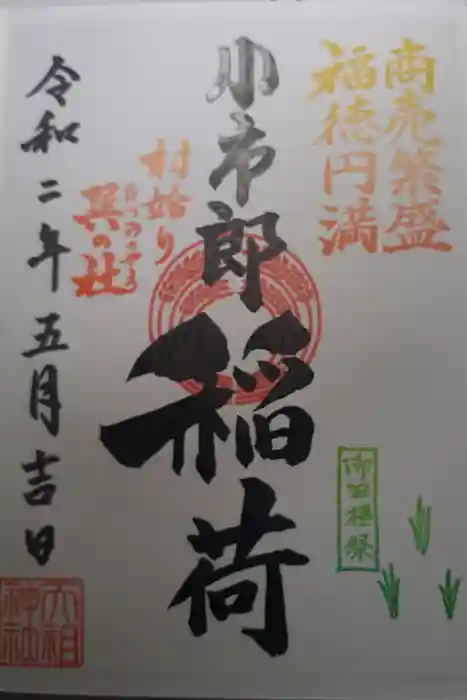 商売繁盛
福徳円満
小市郎
稲荷
村始り
巽の社
令和二年五月吉日
御田植祭
大祖
神社